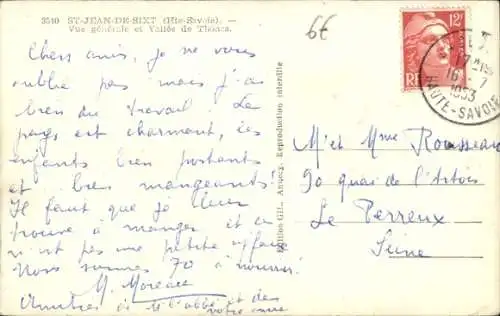 3540 ST-JEAN-DE-SIXT (Hte-Savoie). —
Vue générale et Vallée de Thônes.
6€
12F
RF
17
16 - 7
1953
HAUTE-SAVOIE
Chers amis, je ne vous
oublie pas mais j'ai
bien du travail. Le
pays est charmant, les
enfants bien portants
et bien mangeants!
Il faut que je leur
trouve à manger et ce
n'est pas une petite affaire
Nous sommes 70 à nourrir!
M. Moreau
Amitiés de M l'abbé et de
votre amie
Edition Gil., Annecy. Reproduction interdite
M' et Mme Rousseau
90 quai de l'Artois
Le Perreux
Seine